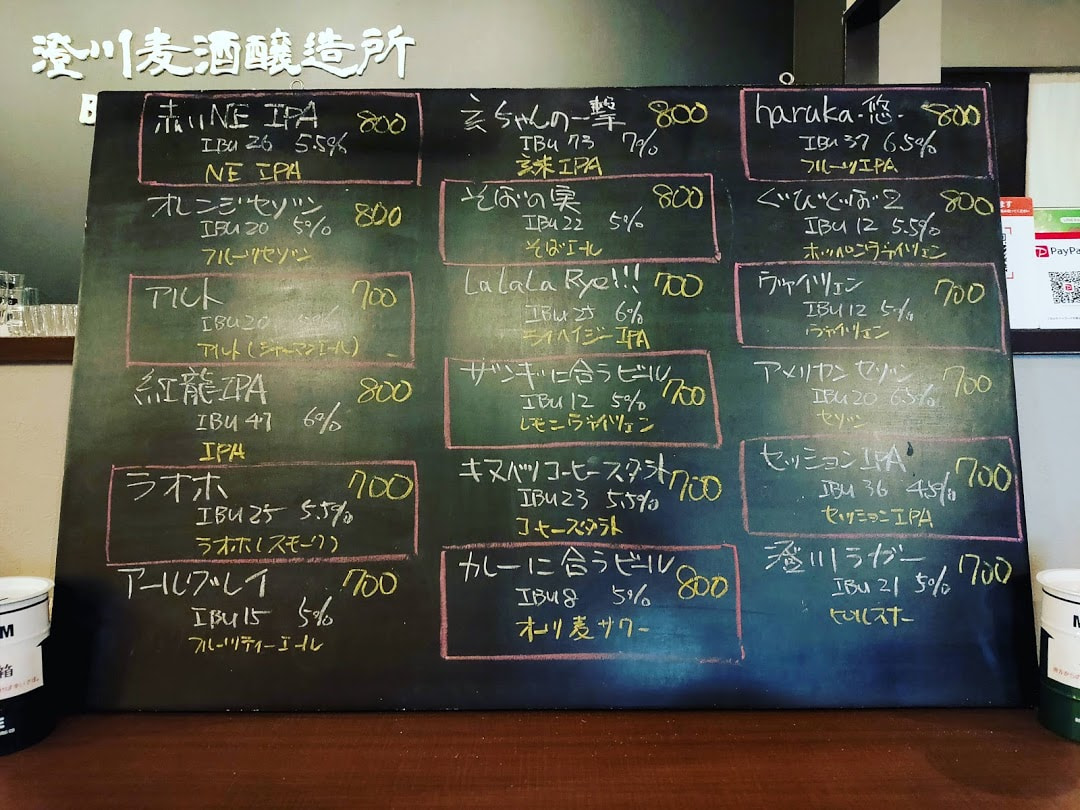 澄川麦酒醸造所
赤いNE IPA 800
IBU 26 5.5%
NE IPA
オレンジセゾン 800
IBU 20 5%
フルーツセゾン
アルト 700
IBU 20 5%
アルト(ジャーマンエール)
紅龍IPA 800
IBU 47 6%
IPA
ラオホ 700
IBU 25 5.5%
ラオホ(スモーク)
アールグレイ 700
IBU 15 5%
フルーツティーエール
玄ちゃんの一撃 800
IBU 73 7%
玄米IPA
そばの実 800
IBU 22 5%
そばエール
LaLaLa Rye!!! 700
IBU 25 6%
ライヘイジーIPA
ザンギに合うビール 700
IBU 12 5%
レモンヴァイツェン
キヌベツコーヒースタウト 700
IBU 23 5.5%
コーヒースタウト
カレーに合うビール 800
IBU 8 5%
オーツ麦サワー
haruka-悠- 800
IBU 37 6.5%
フルーツIPA
ぐびぐば 2 800
IBU 12 5.5%
ホッペンヴァイツェン
ヴァイツェン 700
IBU 12 5%
ヴァイツェン
アメリカンセゾン 700
IBU 20 6.5%
セゾン
セッションIPA 700
IBU 36 4.5%
セッションIPA
澄川ラガー 700
IBU 21 5%
ピルスナー
PayPa
M
箱
M